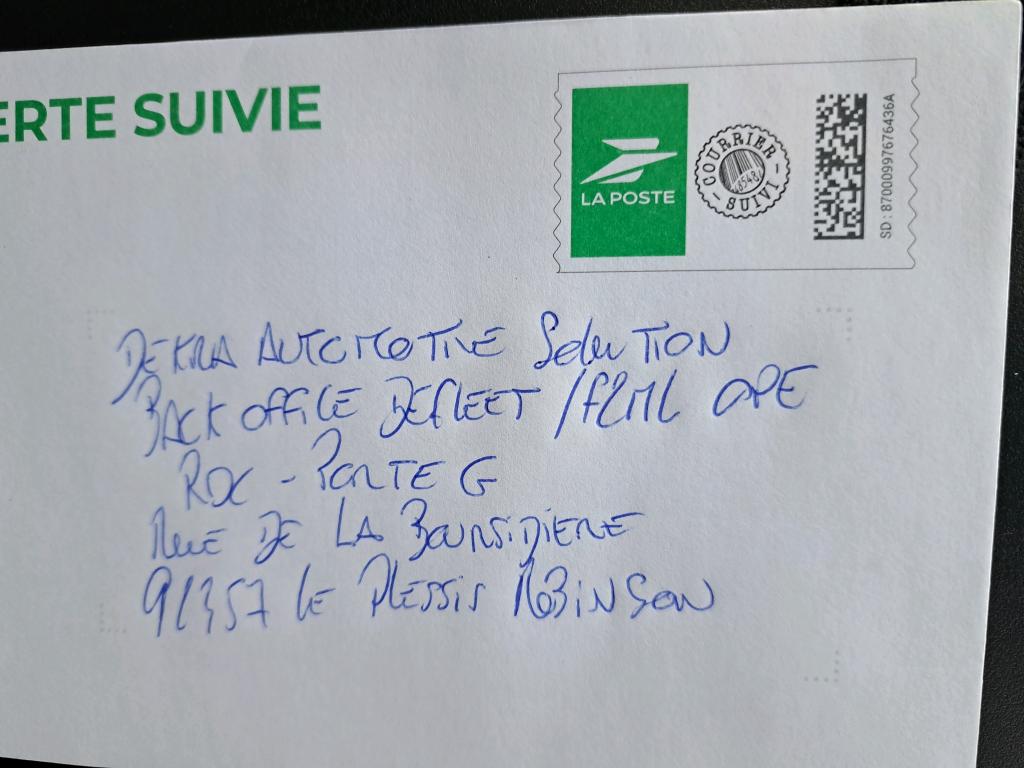 ERTE SUIVIE
LA POSTE
COURRIER
8548
SUIVI
SD : 87000997676436A
DEKRA AUTOMOTIVE Solution
BACK OFFICE DEFLEET / F2ML OPE
RDC - PORTE G
Rue DE LA BOURSIDIERE
91357 Le PLESSIS ROBINSON